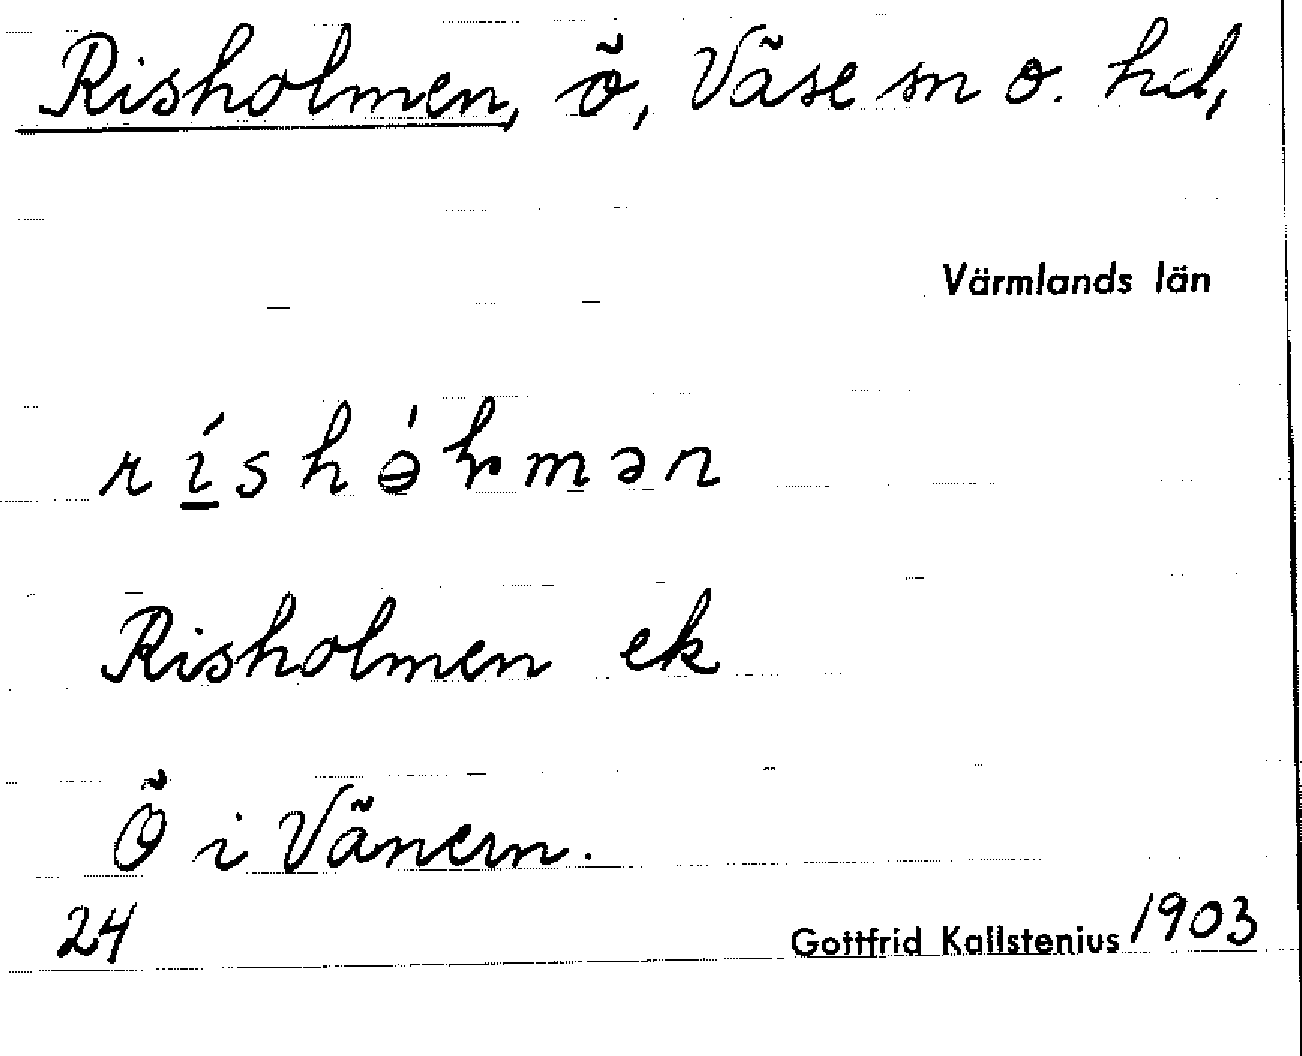 Risholmen, ö, Väse sn o. hd,
Värmlands län
Risholmen ek
Ö i Vänern.
24 Gottfrid Kallstenius 1903